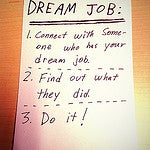 DREAM JOB:
1. Connect with Some-
one who has your
dream job.
2. Find out what
they did.
3. Do it!